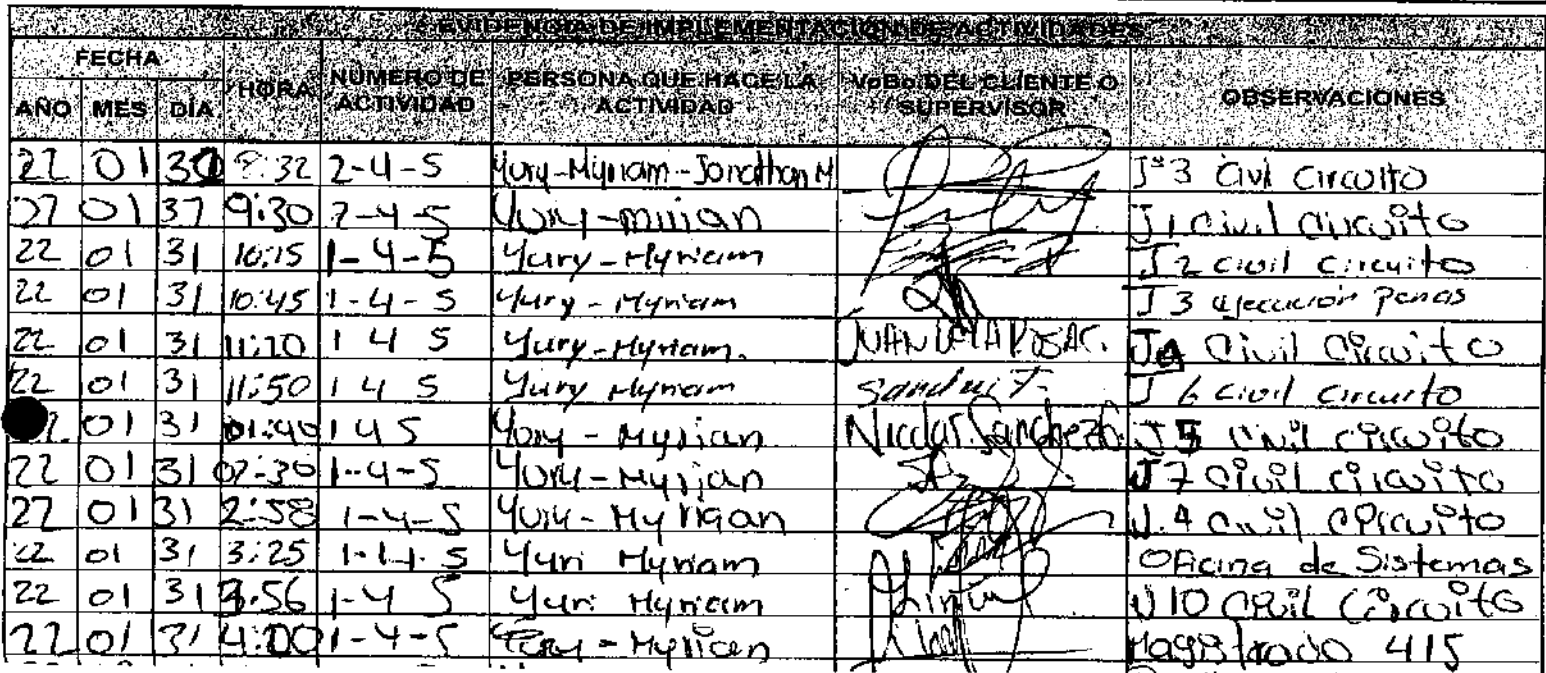 EVIDENCIA DE IMPLEMENTACION DE ACTIVIDADES
FECHA HORA NUMERO DE ACTIVIDAD PERSONA QUE HACE LA ACTIVIDAD VoBo DEL CLIENTE O SUPERVISOR OBSERVACIONES
AÑO MES DÍA
22 01 8:32 2-4-5 Yury-Myriam-Jonathan M J°3 Civil Circuito
22 01 31 9:30 2-4-5 Yury-mirian J1 Civil Circuito
22 01 31 10:15 1-4-5 Yury-Myriam J2 civil circuito
22 01 31 10:45 1-4-5 Yury-Myriam J3 ejecución penas
22 01 31 11:20 1 4 5 Yury-Myriam. JUAN J4 Civil Circuito
22 01 31 11:50 1 4 5 Yury Myriam Sandra J 6 civil circuito
01 31 01:40 1 4 5 Yury - Myrian Nicolas Sanchez J5 Civil circuito
22 01 31 02:30 1-4-5 Yury-Myrian J7 Civil circuito
22 01 31 2:58 1-4-5 Yury-Myrian J.4 civil circuito
22 01 31 3:25 1-4-5 Yuri Myriam Oficina de Sistemas
22 01 31 3:56 1-4 5 Yuri Myriam J10 Civil Circuito
22 01 31 4:00 1-4-5 Yury-Myrian Magistrado 415